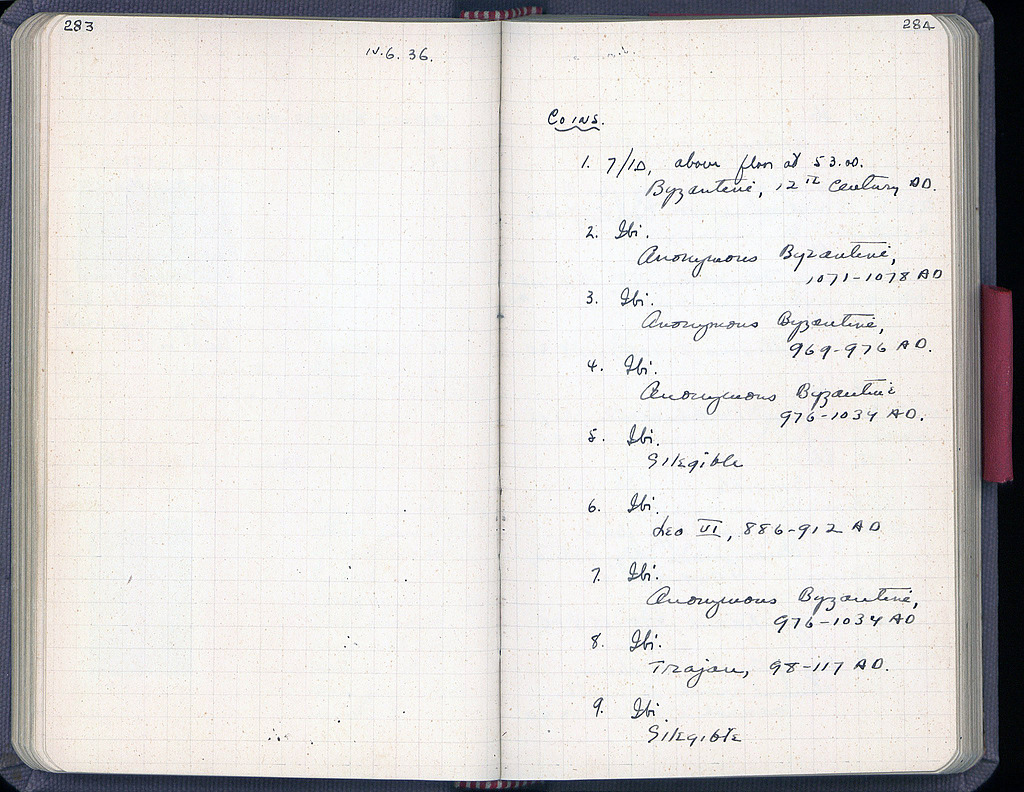 283
IV.6.36.
284
Coins.
1. 7/ID, above floor at 53.00.
Byzantine, 12th Century AD.
2. Ibi.
Anonymous Byzantine,
1071-1078 AD
3. Ibi.
Anonymous Byzantine,
969-976 AD.
4. Ibi.
Anonymous Byzantine
976-1034 AD.
5. Ibi.
Illegible
6. Ibi.
Leo VI, 886-912 AD
7. Ibi.
Anonymous Byzantine,
976-1034 AD
8. Ibi.
Trajan, 98-117 AD.
9. Ibi
Illegible